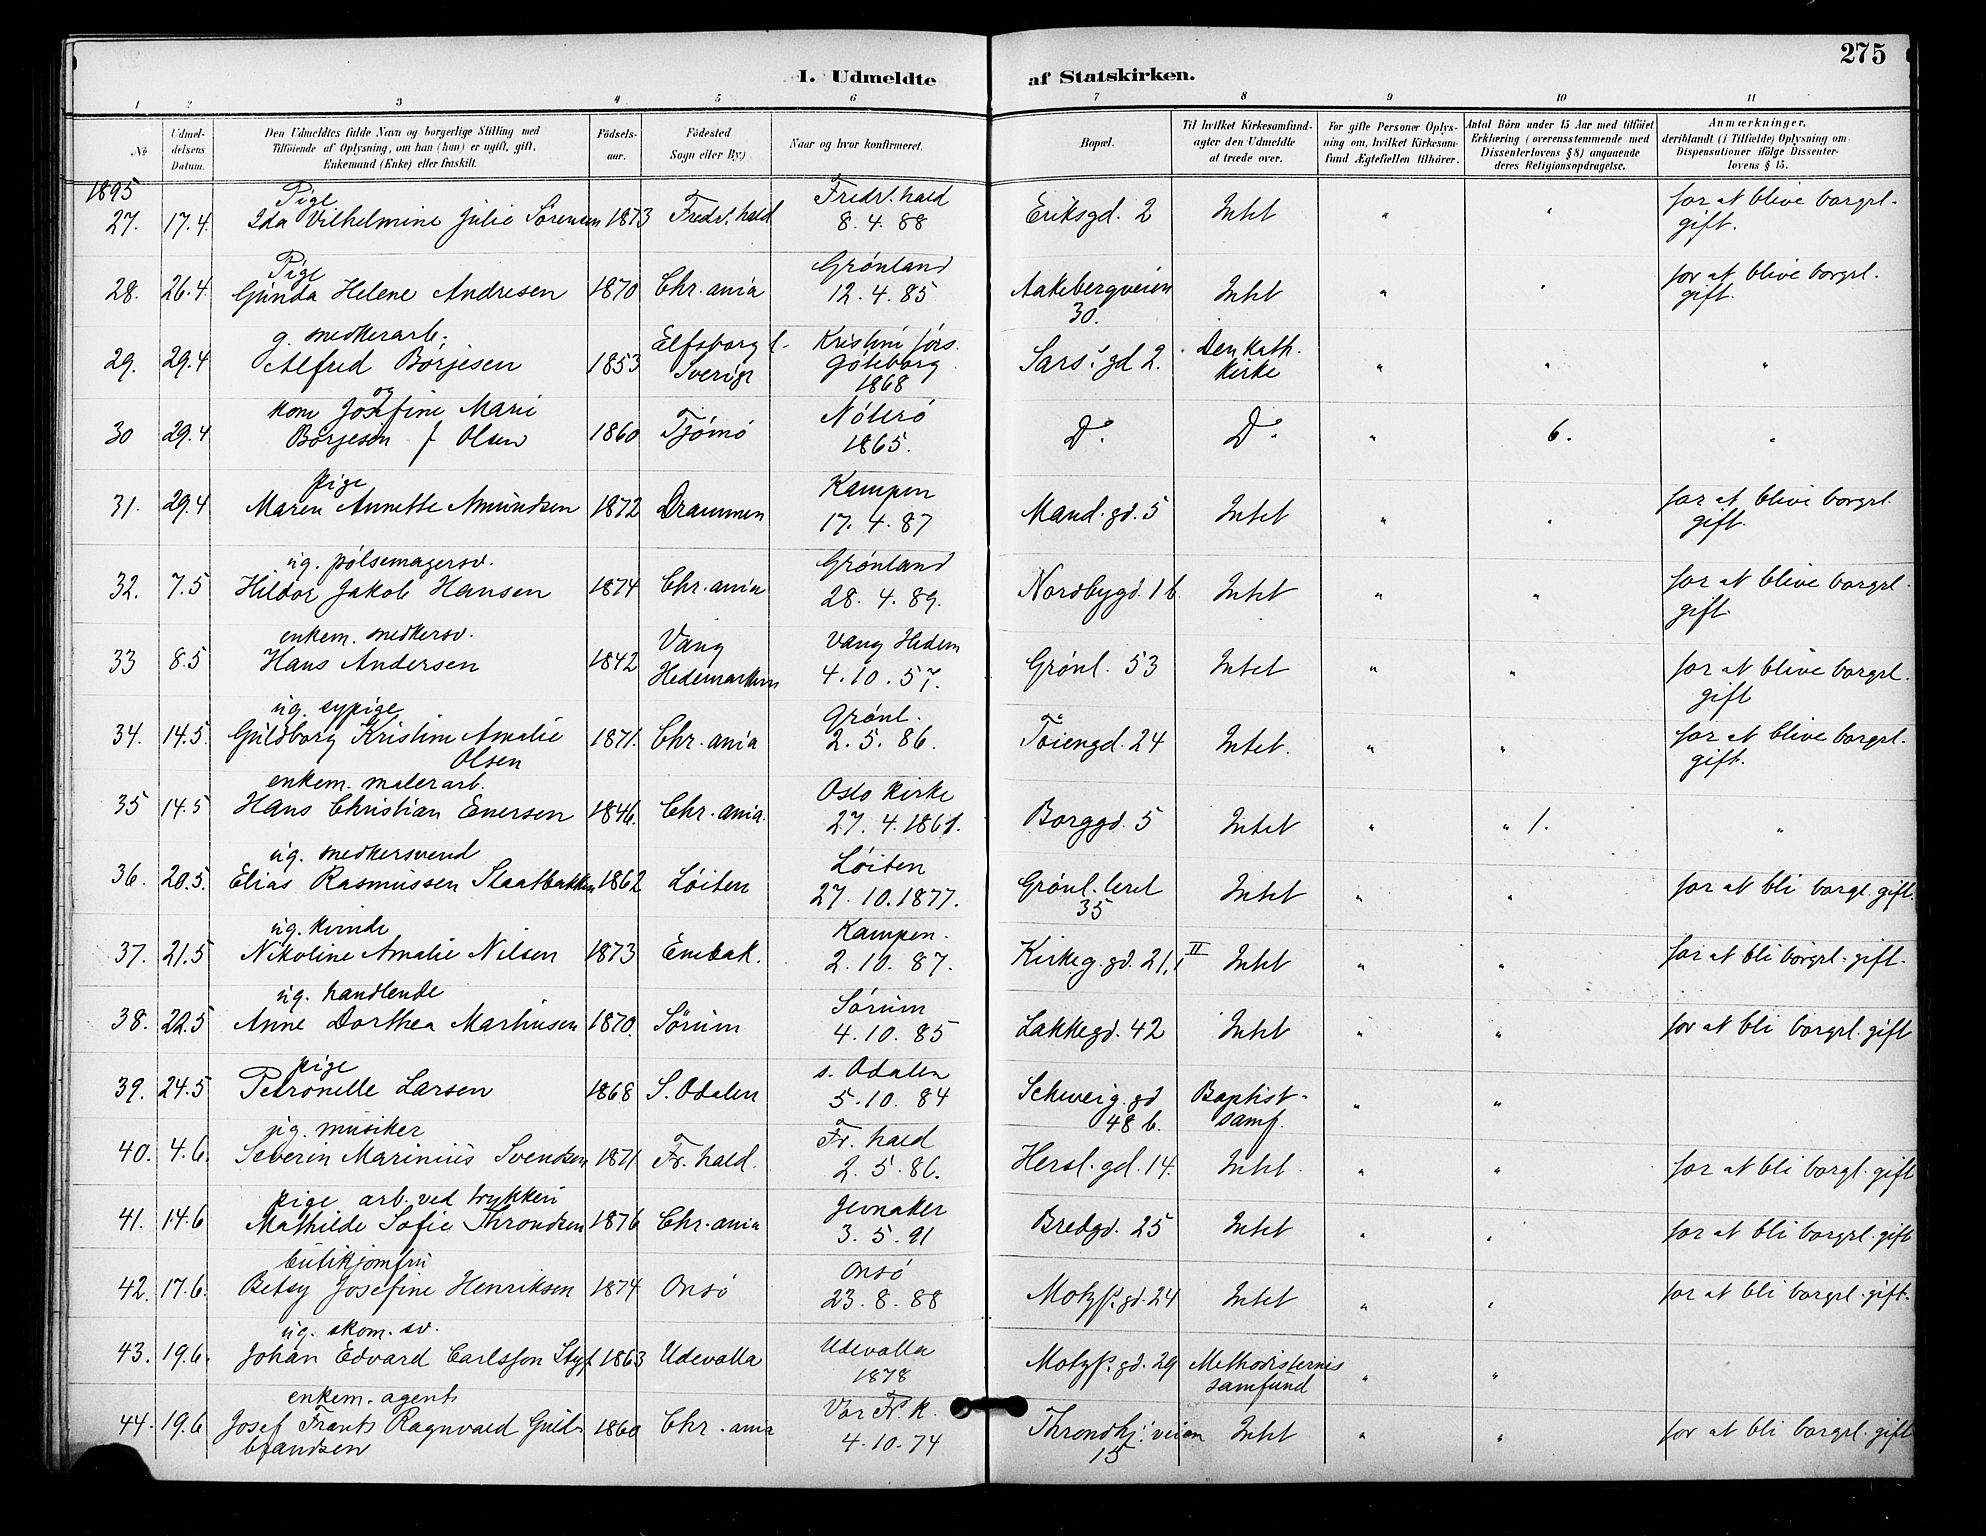 275
I. Udmeldte af Statskirken.
1 2 3 4 5 6 7 8 9 10 11
No
Udmeldelsens Datum.
Den Udmeldtes fulde Navn og borgerlige Stilling med
Tilføiende af Oplysning, om han (hun) er ugift, gift,
Enkemand (Enke) eller fraskilt.
Fødselsaar.
Fødested
Sogn eller By.)
Naar og hvor konfirmeret.
Bopæl.
Til hvilket Kirkesamfund
agter den Udmeldte
at træde over.
For gifte Personer Oplysning
om, hvilket Kirkesamfund
Ægtefællen tilhører.
Antal Børn under 15 Aar med tilføiet
Erklæring (overensstemmende med
Dissenterlovens § 8) angaaende
deres Religionsopdragelse.
Anmærkninger,
deriblandt (i Tilfælde) Oplysning om
Dispensationer ifølge Dissenterlovens
§ 15.
1895
27. 17.4. Pige Ida Vilhelmine Julie Sørensen 1873 Fredr.hald Fredr.hald 8.4.88 Eriksgd. 2 Intet " " for at blive borgrl. gift.
28. 26.4 Pige Gunda Helene Andresen 1870 Chr.ania Grønland 12.4.85 Aakebergveien 30. Intet " " for at blive borgrl. gift.
29. 29.4 g. snedkerarb. Alfred Børjesen 1853 Elfsborg l. Sverige Kristini førs. Göteborg 1868 Sars' gd 2. Den kath. Kirke " " "
30 29.4 og kone Josefine Marie Børjesen f Olsen 1860 Tjømø Nøterø 1865. Do Do " 6. "
31. 29.4 pige Maren Annette Amundsen 1872 Drammen Kampen 17.4.87 Mand.gd. 5 Intet " " for at blive borgrl. gift.
32. 7.5 ug. pølsemagersv. Hildor Jakob Hansen 1874 Chr.ania Grønland 28.4.89. Nordbygd. 1 b Intet " " for at blive borgrl. gift
33 8.5 enkem. snedkersv. Hans Andersen 1842 Vang Hedemarken Vang Hedem 4.10.57. Grønl. 53 Intet " " for at blive borgrl. gift
34. 14.5. ug. sypige Guldborg Kristine Amalie Olsen 1871. Chr.ania Grønl. 2.5.86. Tøiengd. 24 Intet. " " for at blive borgrl. gift.
35 14.5 enkem. malerarb. Hans Christian Enersen 1846. Chr.ania. Oslo Kirke 27.4.1861. Borggd. 5 Intet " " 1. "
36. 20.5. ug. snedkersvend Elias Rasmussen Staatbakken 1862 Løiten Løiten 27.10.1877. Grønl.leret 35 Intet " " for at bli borgl. gift.
37. 21.5 ug. kvinde Nikoline Amalie Nilsen 1873 Enebak. Kampen. 2.10.87. Kirkeg.gd. 21, II Intet " " for at bli borgrl. gift.
38. 22.5 ug. handlende Anne Dorthea Marthinsen 1870. Sørum Sørum 4.10.85 Lakkegd. 42 Intet " " for at bli borgrl. gift
39. 24.5 pige Petronelle Larsen 1868 S. Odalen s. Odalen 5.10.84 Schweig.gd 48 b. Baptist-samf. " "
40. 4.6. ug. musiker Severin Marinius Svendsen 1871 Fr.hald. Fr.hald 2.5.86. Hersl.gd. 14. Intet " " for at bli borgl. gift
41. 14.6 pige arb. ved trykkeri Mathilde Sofie Throndsen 1876 Chr.ania Jevnaker 3.5.91 Bredgd. 25 Intet " " for at bli borgrl. gift
42. 17.6. butikjomfru Betsy Josefine Henriksen 1874 Onsø Onsø 23.8.88 Motzf.gd. 24 Intet " " for at bli borgrl. gift.
43. 19.6. ug. skom. sv. Johan Edvard Carlsson Styf 1863 Udevalla Udevalla 1878 Motzf.gd. 29 Methodisternes samfund " "
44. 19.6 enkem. agent Josef Frants Ragnvald Guldbrandsen 1860 Chr.ania Vor Fr. K. 4.10.74 Throndhj.veien 15 Intet " " for at bli borgrl. gift